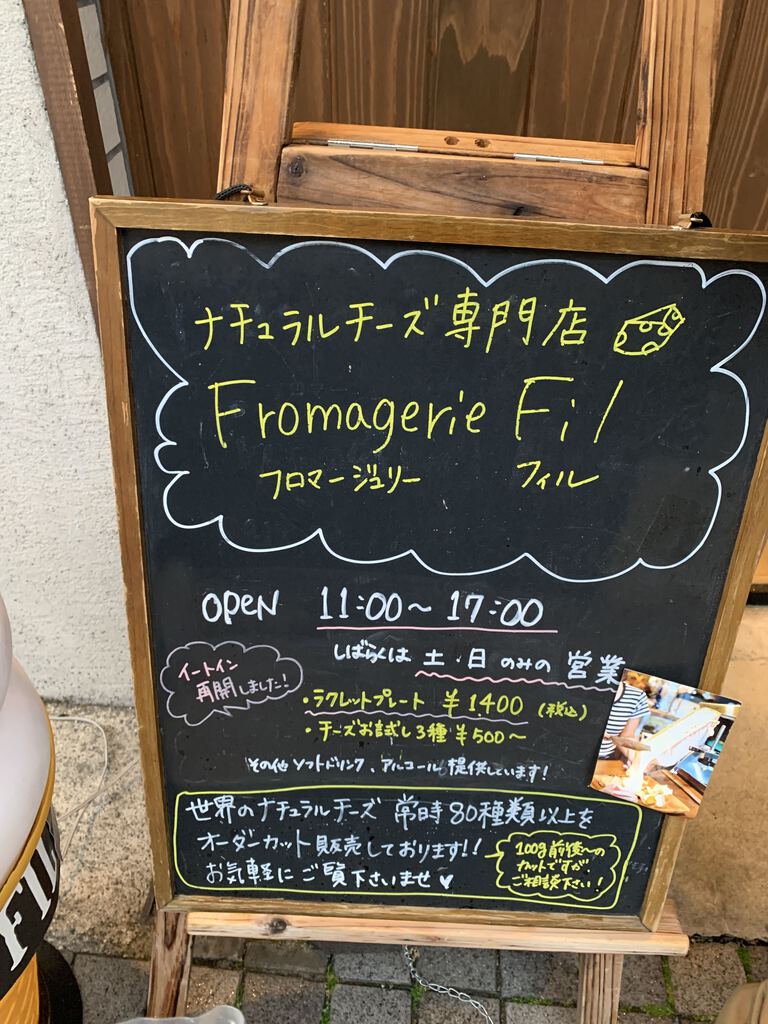 ナチュラルチーズ専門店
Fromagerie Fil
フロマージュリー フィル
OPEN 11:00〜17:00
しばらくは 土・日 のみの 営業
イートイン
再開しました!
・ラクレットプレート ¥1400 (税込)
・チーズお試し3種 ¥500〜
その他 ソフトドリンク、アルコール 提供しています!
世界のナチュラルチーズ 常時80種類以上を
オーダーカット販売しております!!
お気軽にご覧下さいませ♥
100g前後への
カットですが、
ご相談下さい!
FIL